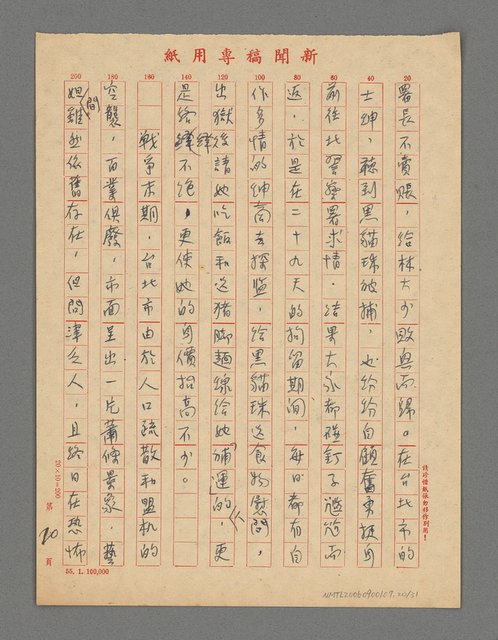 新聞稿專用紙
20
40
60
80
100
120
140
160
180
200
署長不賣賬，給林大少敗興而歸。在台北市的
士紳，聽到黑貓珠被捕，也紛紛自願奮勇挺身
前往北署求情，結果大家都碰釘子尷尬而
返，於是在二十九天的拘留期間，每日都有自
作多情的紳商去探監，給黑貓珠送食物慰問，
出獄後請她吃飯和送豬腳麵線給她補運的人，更
是絡繹不絕，更使她的身價抬高不少。
戰爭末期，台北市由於人口疏散和盟机的
空襲，百業俱廢，市面呈出一片蕭條景象，藝
妲間雖然依舊存在，但問津乏人，且終日在恐怖
請珍惜紙張勿移作別用！
20×10=200
第20頁
55.1.100,000
NMTL20060900107.20/31